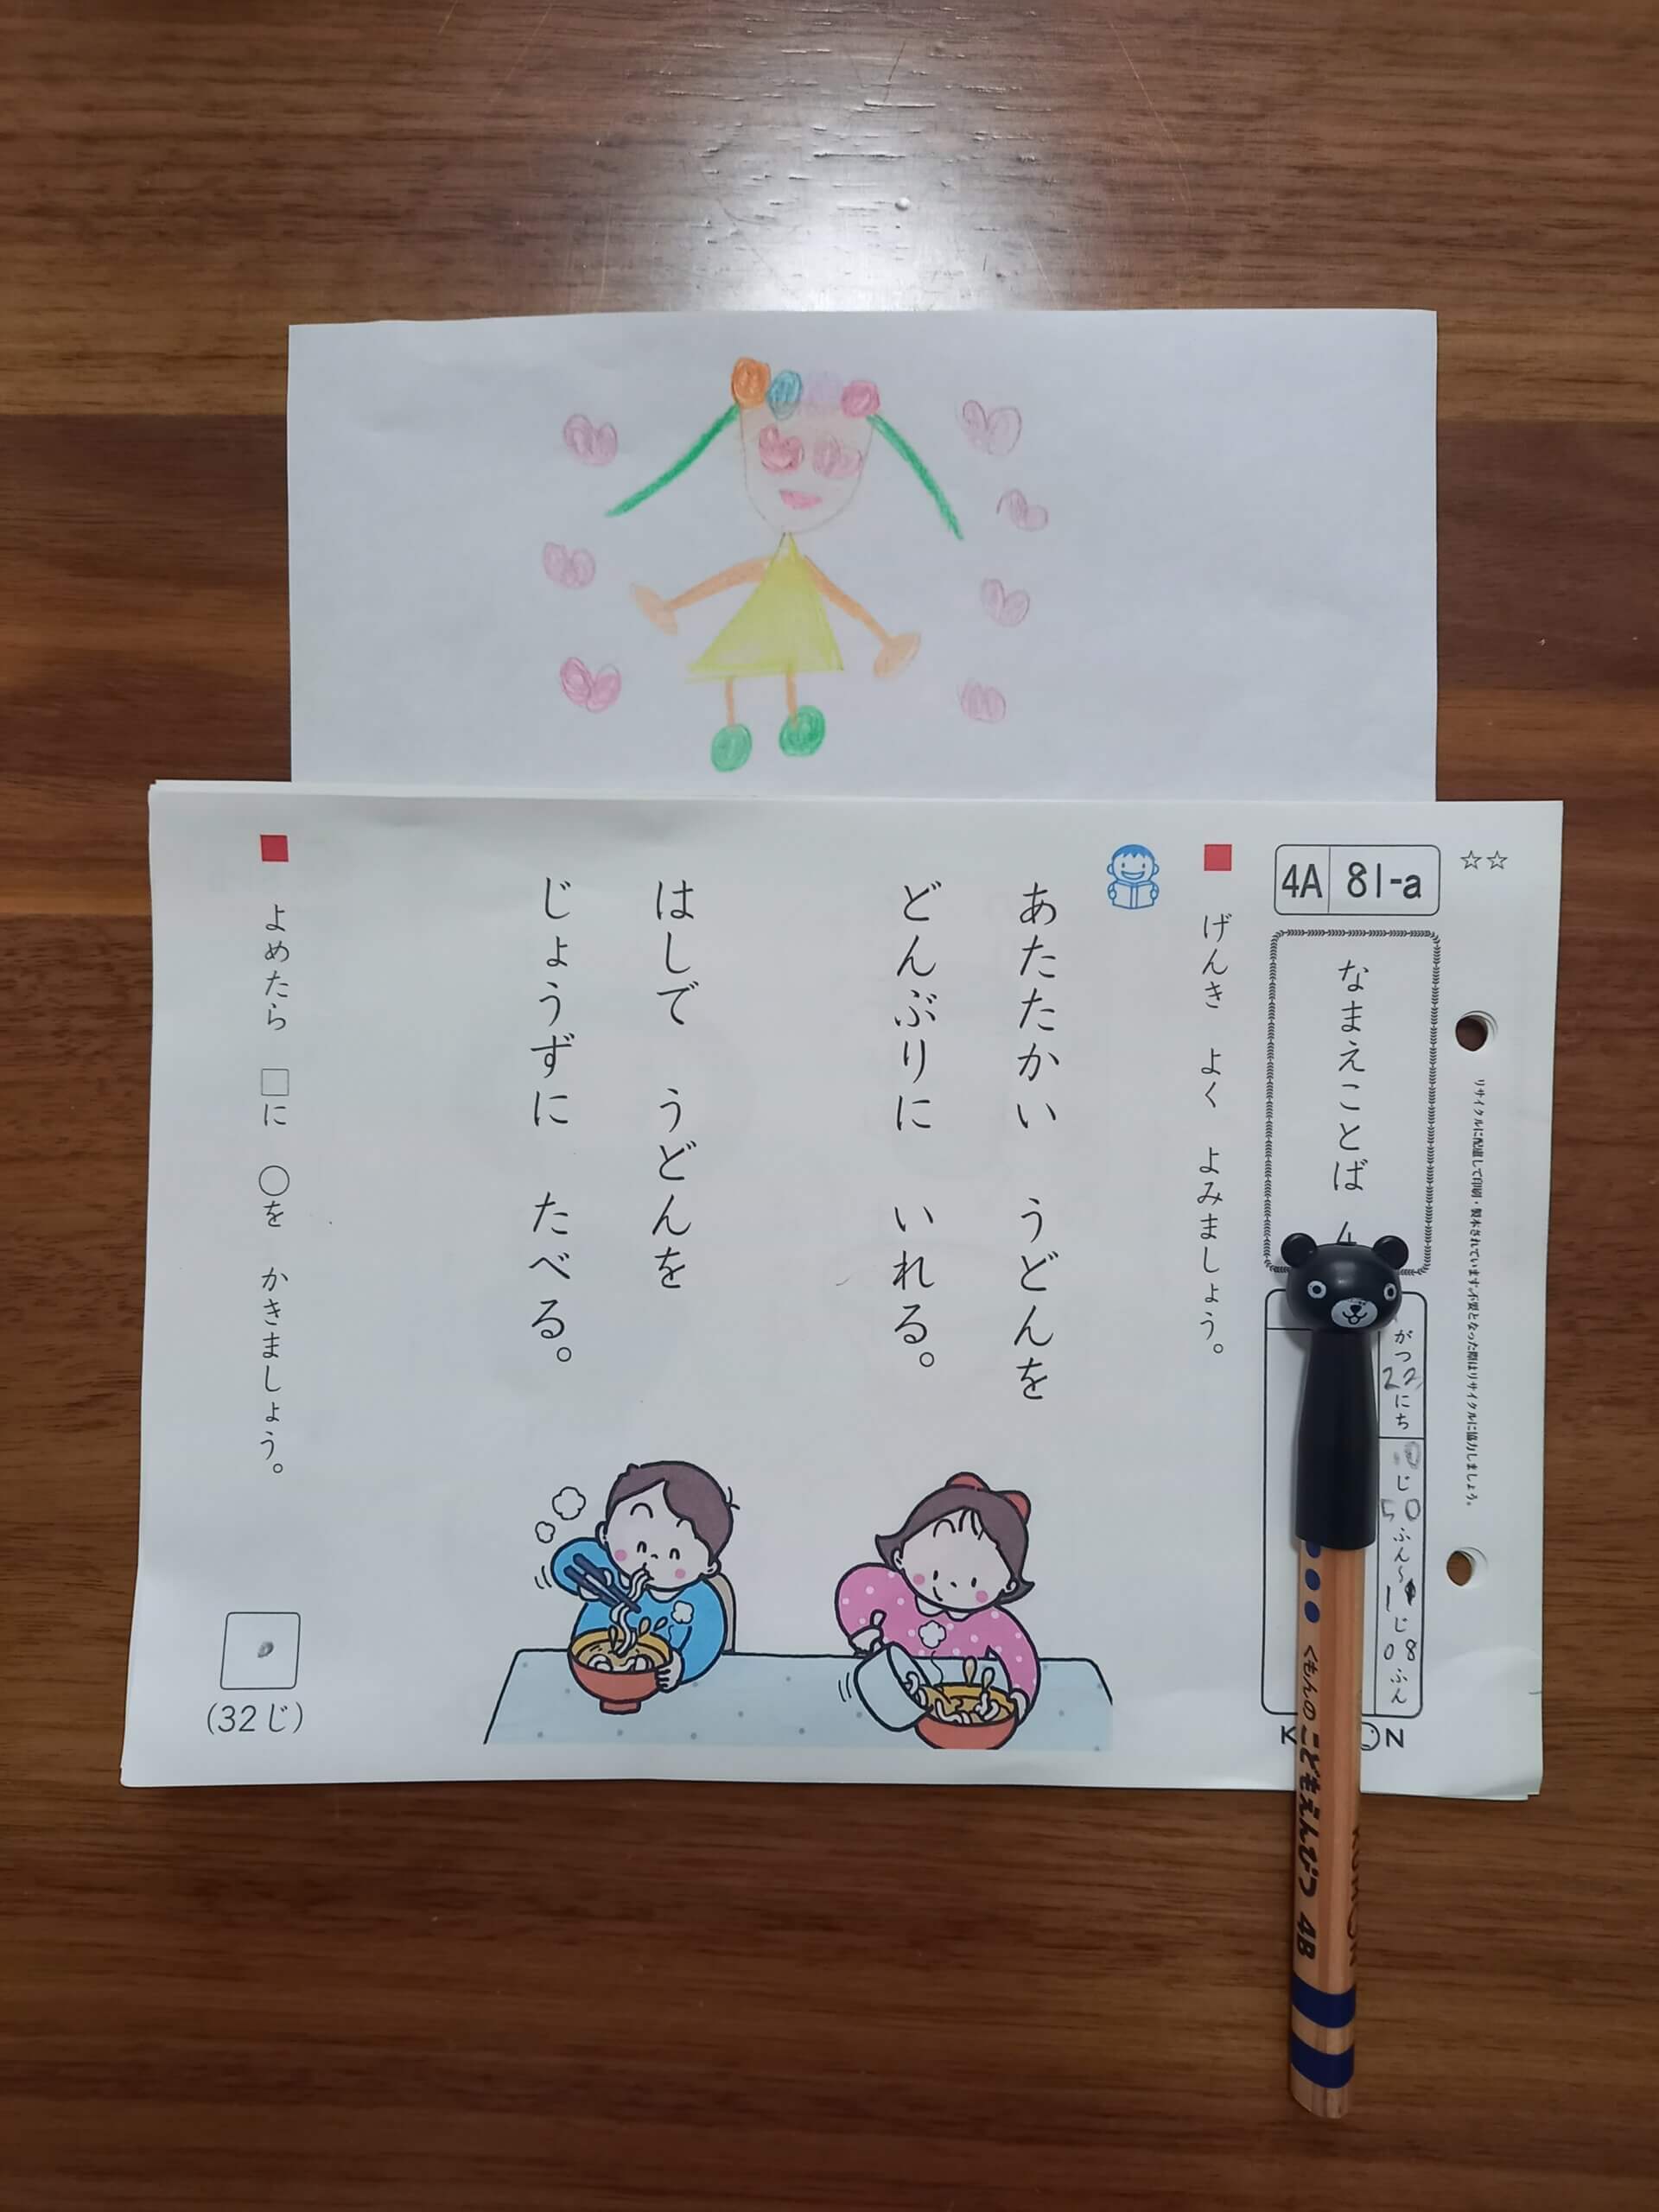 ☆☆
4A 81-a
なまえことば
リサイクルに配慮して印刷・製本されています。不要となった際はリサイクルに協力しましょう。
がつ 22にち
10じ50ふん〜1じ08ふん
げんき よく よみましょう。
あたたかい うどんを
どんぶりに いれる。
はしで うどんを
じょうずに たべる。
よめたら □に ○を かきましょう。
(32じ)
くもんの こどもえんぴつ 4B